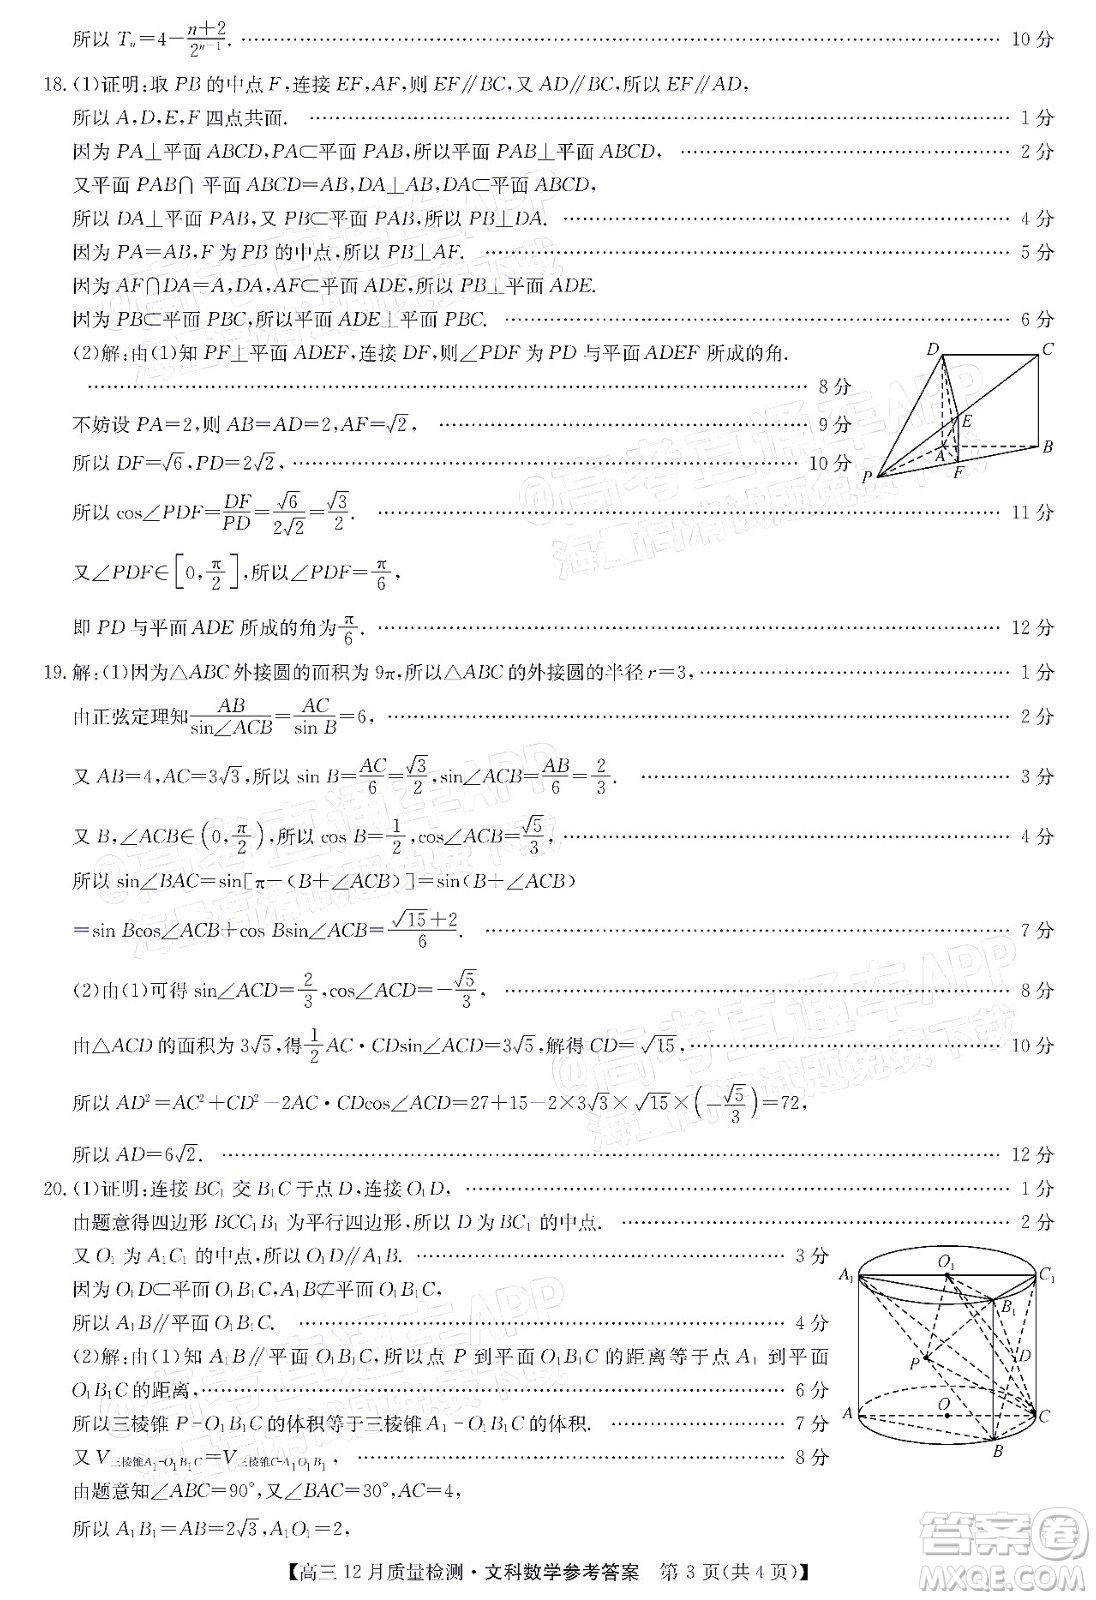 所以 Tₙ=4-(n+2)/2ⁿ⁻¹. …… 10 分
18. (1)证明:取 PB 的中点 F,连接 EF,AF,则 EF∥BC,又 AD∥BC,所以 EF∥AD,
所以 A,D,E,F 四点共面. …… 1 分
因为 PA⊥平面 ABCD,PA⊂平面 PAB,所以平面 PAB⊥平面 ABCD, …… 2 分
又平面 PAB∩ 平面 ABCD=AB,DA⊥AB,DA⊂平面 ABCD,
所以 DA⊥平面 PAB,又 PB⊂平面 PAB,所以 PB⊥DA. …… 4 分
因为 PA=AB,F 为 PB 的中点,所以 PB⊥AF. …… 5 分
因为 AF∩DA=A,DA,AF⊂平面 ADE,所以 PB⊥平面 ADE.
因为 PB⊂平面 PBC,所以平面 ADE⊥平面 PBC. …… 6 分
(2)解:由(1)知 PF⊥平面 ADEF,连接 DF,则∠PDF 为 PD 与平面 ADEF 所成的角.
…… 8 分
不妨设 PA=2,则 AB=AD=2,AF=√2, …… 9 分
所以 DF=√6,PD=2√2, …… 10 分
所以 cos∠PDF=DF/PD=√6/(2√2)=√3/2. …… 11 分
又∠PDF∈[0,π/2],所以∠PDF=π/6,
即 PD 与平面 ADE 所成的角为π/6. …… 12 分
D C E A B P F
19. 解:(1)因为△ABC 外接圆的面积为 9π,所以△ABC 的外接圆的半径 r=3, …… 1 分
由正弦定理知AB/sin∠ACB=AC/sin B=6, …… 2 分
又 AB=4,AC=3√3,所以 sin B=AC/6=√3/2,sin∠ACB=AB/6=2/3. …… 3 分
又 B,∠ACB∈(0,π/2),所以 cos B=1/2,cos∠ACB=√5/3, …… 4 分
所以 sin∠BAC=sin[π-(B+∠ACB)]=sin(B+∠ACB)
=sin Bcos∠ACB+cos Bsin∠ACB=(√15+2)/6. …… 7 分
(2)由(1)可得 sin∠ACD=2/3,cos∠ACD=-√5/3, …… 8 分
由△ACD 的面积为 3√5,得1/2AC·CDsin∠ACD=3√5,解得 CD=√15, …… 10 分
所以 AD²=AC²+CD²-2AC·CDcos∠ACD=27+15-2×3√3×√15×(-√5/3)=72,
所以 AD=6√2. …… 12 分
20. (1)证明:连接 BC₁ 交 B₁C 于点 D,连接 O₁D, …… 1 分
由题意得四边形 BCC₁B₁ 为平行四边形,所以 D 为 BC₁ 的中点. …… 2 分
又 O₁ 为 A₁C₁ 的中点,所以 O₁D∥A₁B. …… 3 分
因为 O₁D⊂平面 O₁B₁C,A₁B⊄平面 O₁B₁C,
所以 A₁B∥平面 O₁B₁C. …… 4 分
(2)解:由(1)知 A₁B∥平面 O₁B₁C,所以点 P 到平面 O₁B₁C 的距离等于点 A₁ 到平面
O₁B₁C 的距离, …… 6 分
所以三棱锥 P-O₁B₁C 的体积等于三棱锥 A₁-O₁B₁C 的体积. …… 7 分
又 V三棱锥A₁-O₁B₁C=V三棱锥C-A₁O₁B₁, …… 8 分
由题意知∠ABC=90°,又∠BAC=30°,AC=4,
所以 A₁B₁=AB=2√3,A₁O₁=2,
A₁ O₁ C₁ B₁ P D A O C B
【高三 12 月质量检测·文科数学参考答案 第 3 页(共 4 页)】
@高考直通车APP
海量高清试题免费下载
答案卷
MXQE.COM